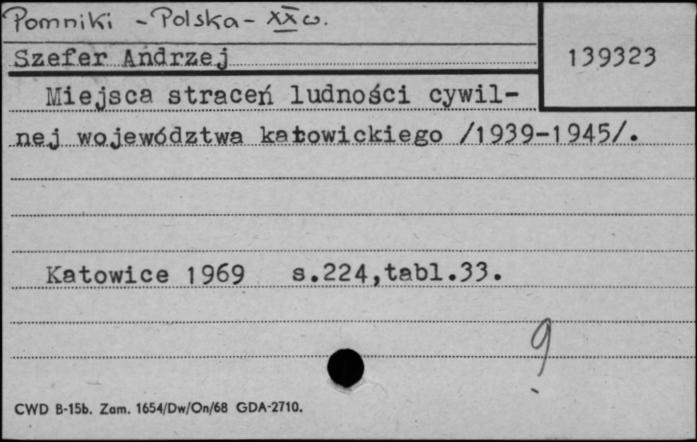 Pomniki - Polska - XX w.
Szefer Andrzej
139323
Miejsca straceń ludności cywil-
nej województwa katowickiego /1939-1945/.
Katowice 1969 s.224,tabl.33.
CWD B-15b. Zam. 1654/Dw/On/68 GDA-2710.